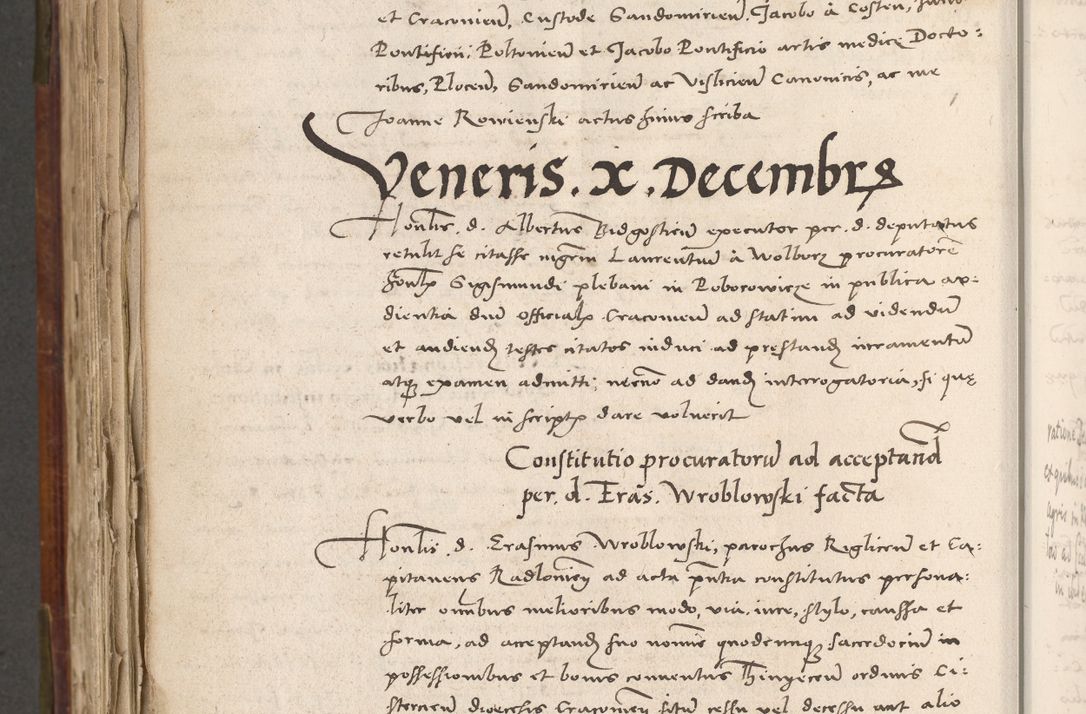 et Cracovien̄, Custode Sandomirien̄, Jacobo à Costen,
Pontificii, Poltovien̄ et Jacobo Pontificio artis medicę Docto-
ribus, Plocen̄, Sandomirien̄ ac Vislicien̄ Canonicis, ac me
Joanne Rowienski actus huius scriba
Veneris. x. Decembrꝭ
Honlis. d. Albertus Bidgostien̄ executor per. d. deputatus
retulit se citasse mgrm Laurentiū à Wolborz procuratorē
honlꝭ Sigismundi plebani in Poborowicze in publica au-
dientia dnī officialꝭ Cracovien̄ ad statim ad videndū
et audiend̄ testes citatos induci ad pręstand̄ iuramentū
atqꝫ examen admitti, necnō ad dand̄ interrogatoria, si quę
verbo vel in scriptꝭ dare voluerit
Constitutio procuratorū ad acceptand̄
per. d. Eras. Wroblowski facta
Honlis. d. Erasmus Wroblowski, parochus Reglicen̄ et Ca-
pitaneus Radlovien̄ ad acta pn̄tia constitutus persona-
liter om̄ibus melioribus modo, via, iure, stylo, caussa et
forma, ad acceptand̄ suo nomīe quodcunqꝫ sacerdociū in
possessionibus et bonis conventus Thinęcen̄ ordinis Ci-
stercien̄ diocesis Cracovien̄ sitū cessu vel decessu aut alio